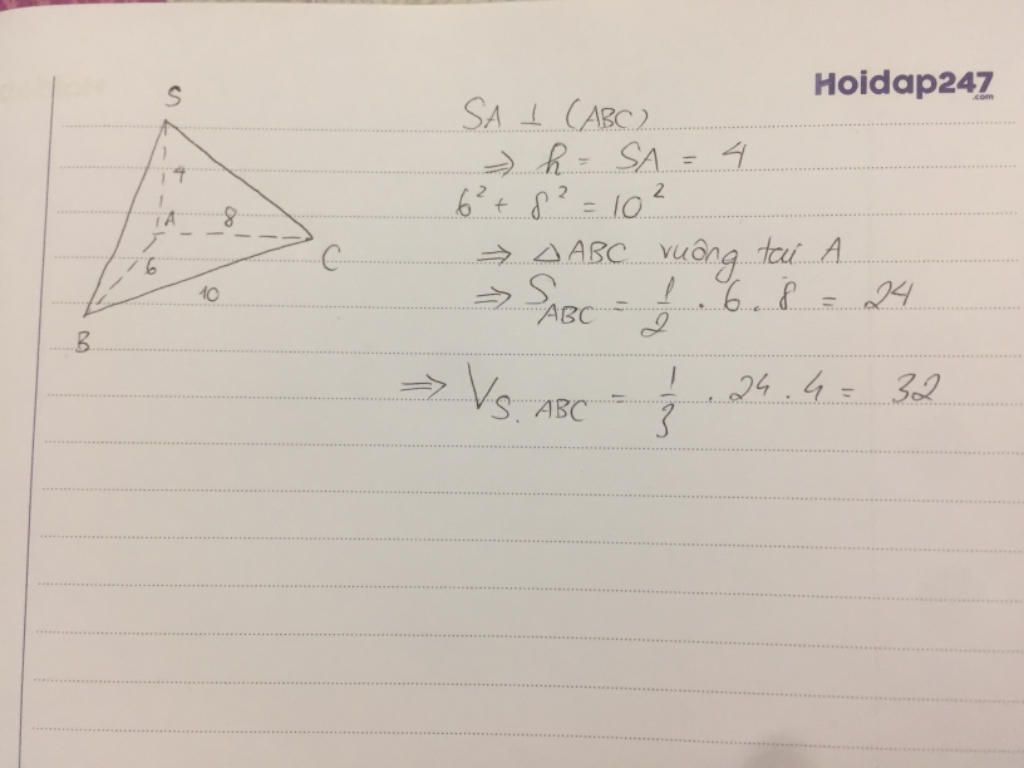 Hoidap247
.com
S
4
A
8
6
C
10
B
SA ⊥ (ABC)
⇒ h = SA = 4
6² + 8² = 10²
⇒ △ABC vuông tại A
⇒ S_ABC = 1/2 . 6 . 8 = 24
⇒ V_S.ABC = 1/3 . 24 . 4 = 32